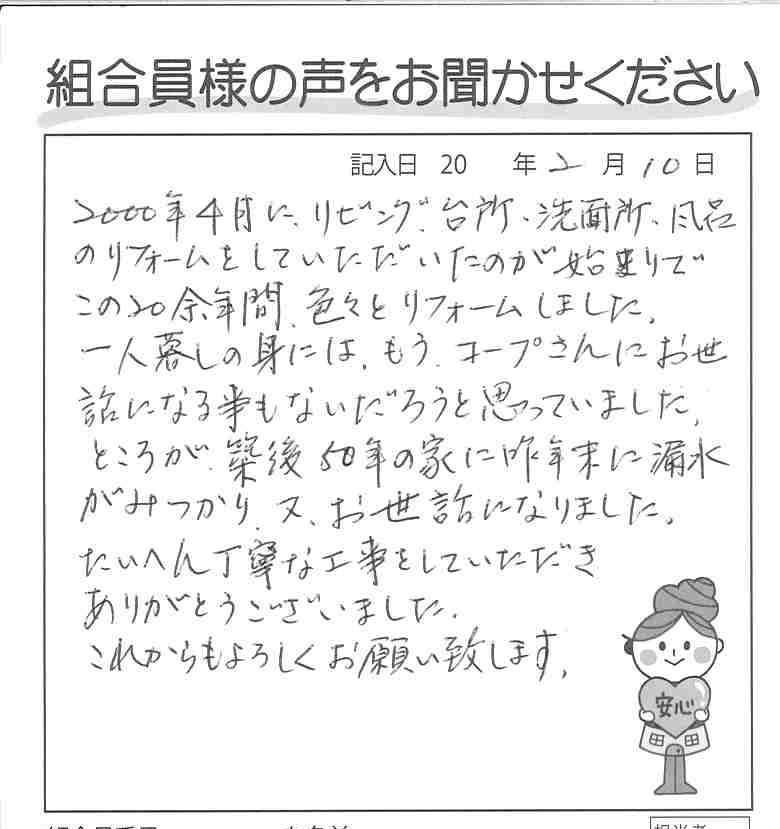 組合員様の声をお聞かせください
記入日 20 年 2 月 10 日
2000年4月に、リビング、台所、洗面所、風呂
のリフォームをしていただいたのが始まりで
この20余年間、色々とリフォームしました。
一人暮しの身には、もう、コープさんにお世
話になる事もないだろうと思っていました。
ところが、築後50年の家に昨年末に漏水
がみつかり、又、お世話になりました。
たいへん丁寧な工事をしていただき
ありがとうございました。
これからもよろしくお願い致します。
安心